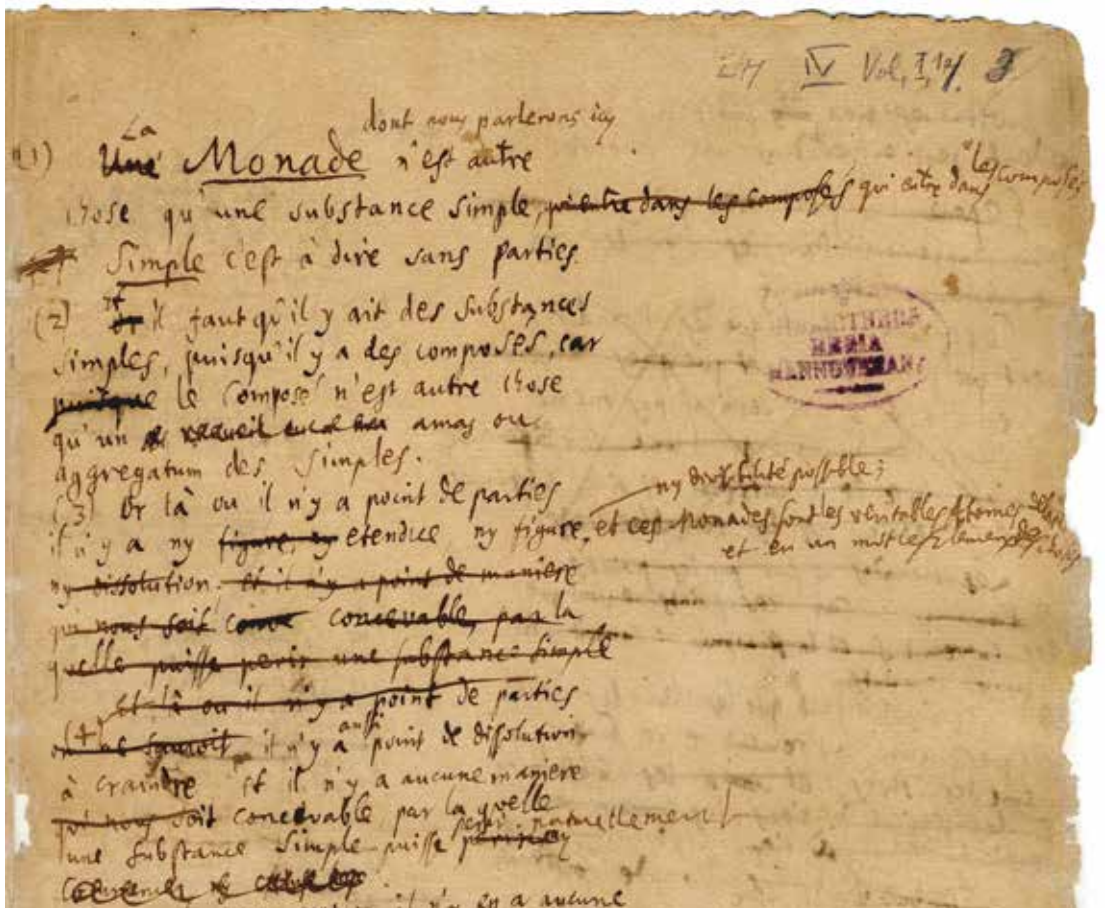 LH IV Vol. I, 1a. 3
La dont nous parlerons icy
(1) Une Monade n'est autre
chose qu'une substance simple, qui entre dans les composés qui entre dans les composés
Simple c'est à dire sans parties.
(2) et il faut qu'il y ait des substances
simples, puisqu'il y a des composés, car
puisque le composé n'est autre chose
qu'un recueil amas ou
aggregatum des simples.
(3) Or là ou il n'y a point de parties
ny divisibilité possible;
il n'y a ny figure, ny etendue, ny figure, et ces Monades sont les veritables Atomes de la
et en un mot les Elemens des choses
ny dissolution. et il n'y a point de maniere
qui nous soit concevable, par la
quelle puisse perir une substance simple
Et là ou il n'y a point de parties
(4) on ne sauroit, il n'y a aussi point de dissolution
à craindre et il n'y a aucune maniere
qui nous soit concevable par la quelle
une substance simple puisse perir naturellement
il n'y en a aucune
BIBLIOTHECA
REGIA
HANNOVERANA